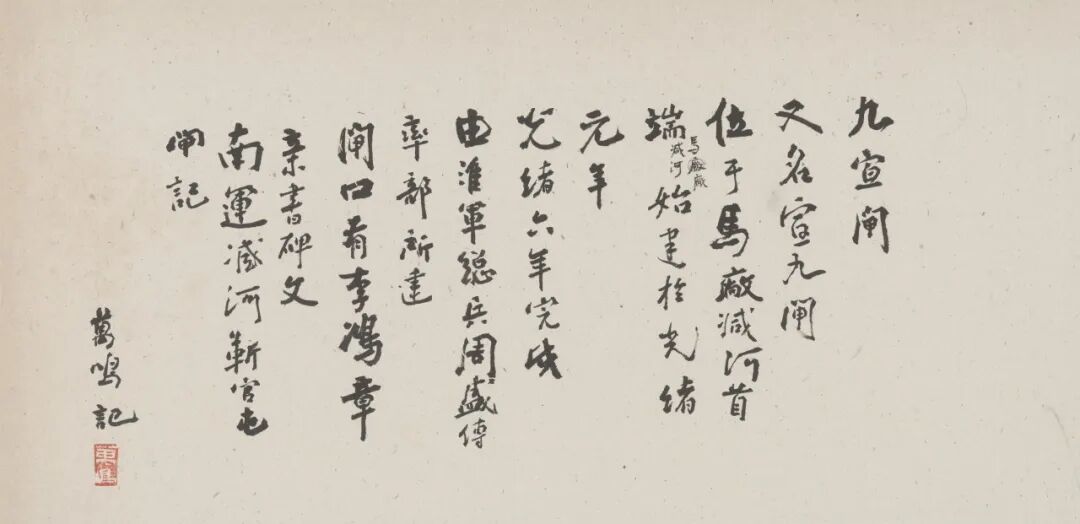 九宣闸
又名宣九闸
位于馬廠減河首
端
馬廠廠
減河
始建於光緒
元年
光緒六年完成
由淮軍總兵周盛傳
率部所建
閘口有李鴻章
亲書碑文
南運減河靳官屯
闸記
萬鸣記